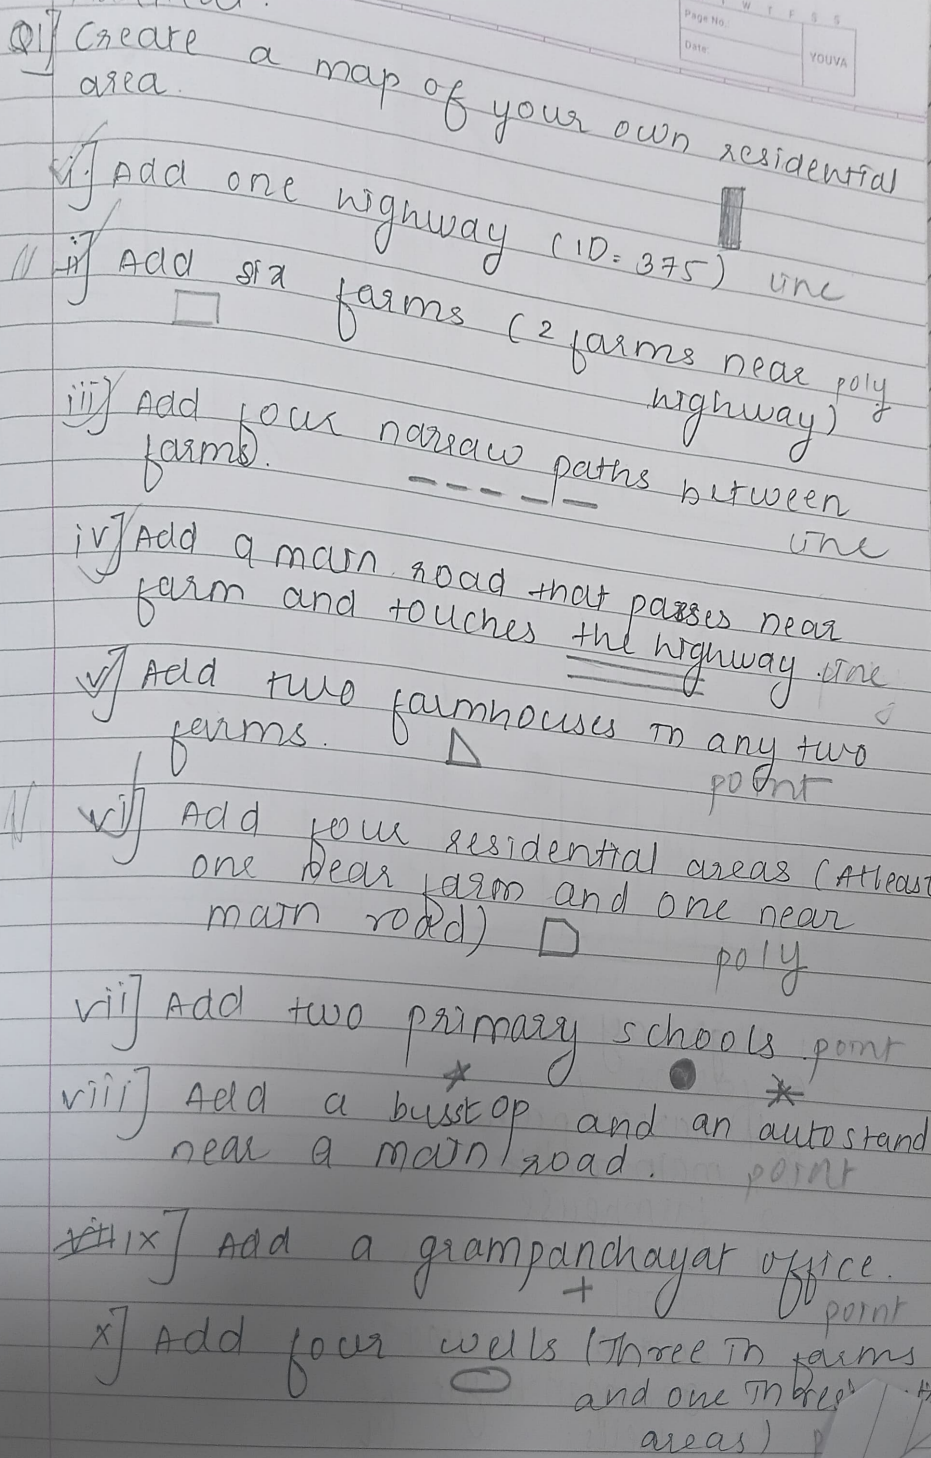 Page No.:
Date:
YOUVA
Q1] Create a map of your own residential
area.
i] Add one highway (ID=375) line
ii] Add six farms (2 farms near poly
highway)
iii] Add four narrow paths between
farms). line
iv] Add a main road that passes near
farm and touches the highway line
v] Add two farmhouses in any two
farms. point
vi] Add four residential areas (Atleast
one near farm and one near
main roded) poly
vii] Add two primary schools point
viii] Add a busstop and an autostand
near a main road. point
ix] Add a grampanchayat office.
point
x] Add four wells (Three in farms
and one in
areas)